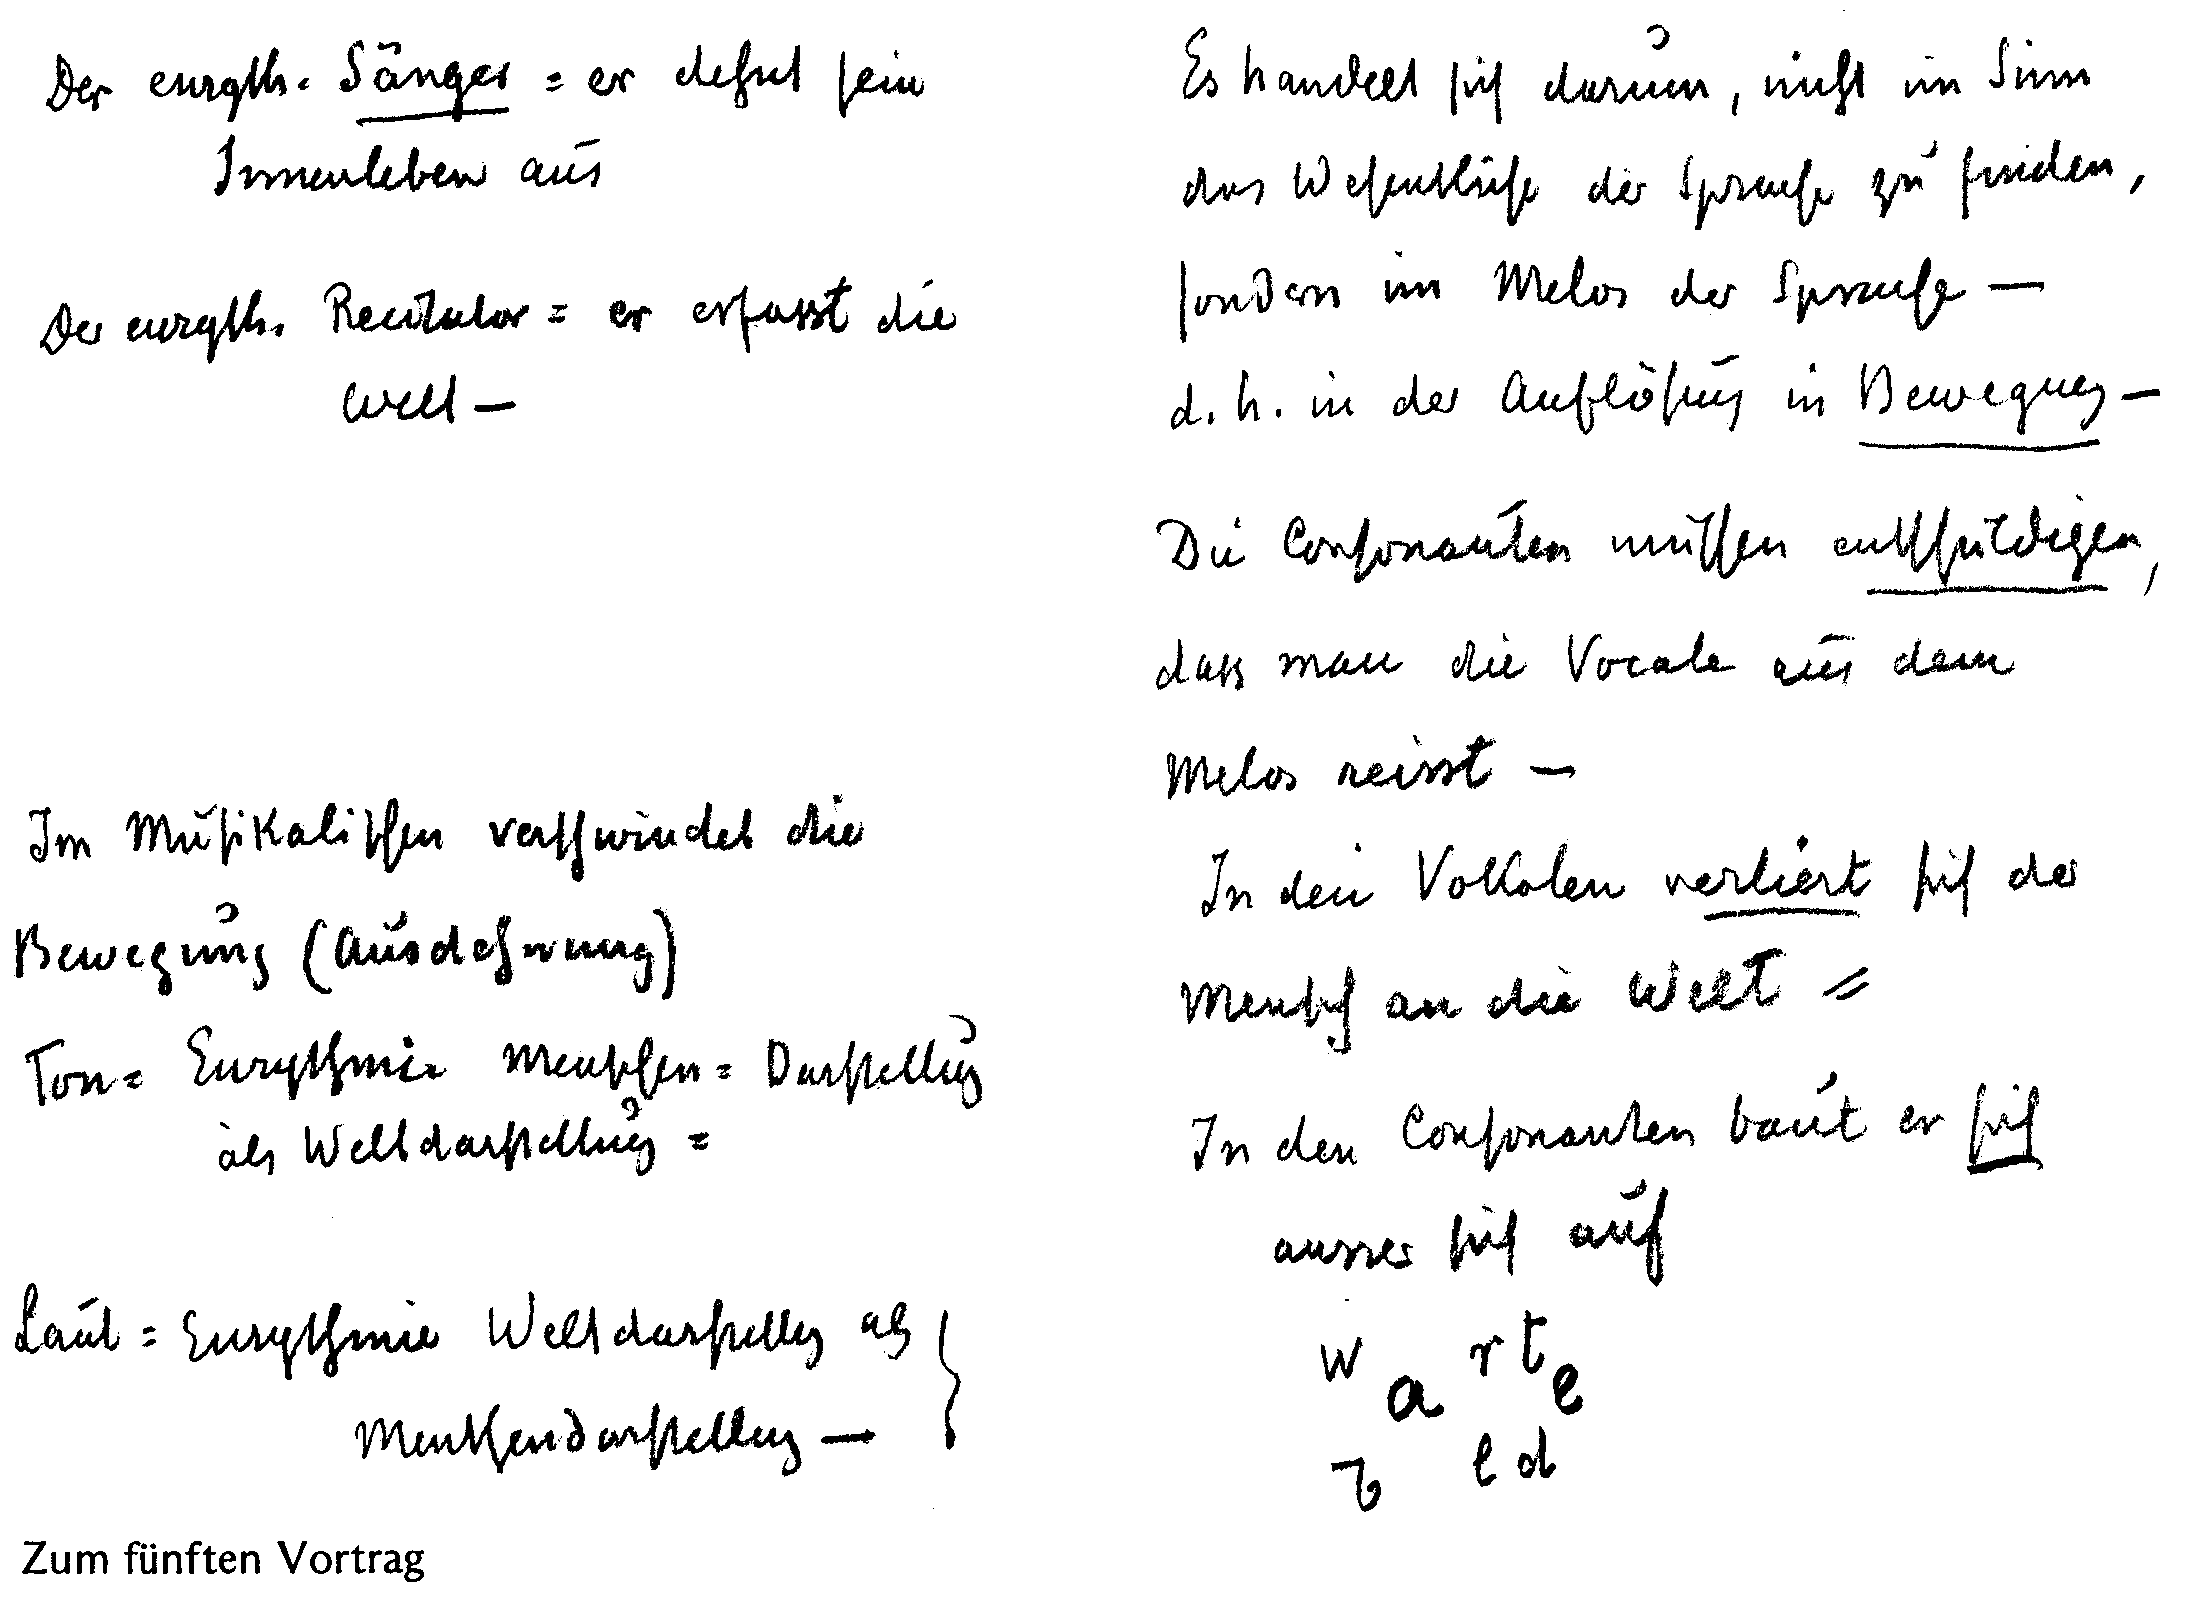 Der euryth. Sänger = er dehnt sein
Innenleben aus
Der euryth. Recitator = er erfasst die
Welt —
Im Musikalischen verschwindet die
Bewegung (Ausdehnung)
Ton = Eurythmie Menschen = Darstellung
als Weltdarstellung =
Laut = Eurythmie Weltdarstellung als
Menschendarstellung —
Zum fünften Vortrag
Es handelt sich darum, nicht im Sinn
das Wesentliche der Sprache zu finden,
sondern im Melos der Sprache —
d. h. in der Auflösung in Bewegung —
Die Consonanten müssen entschuldigen,
dass man die Vocale aus dem
Melos reisst —
In den Vokalen verliert sich der
Mensch an die Welt =
In den Consonanten baut er sich
ausser sich auf
w r t
a e
l d